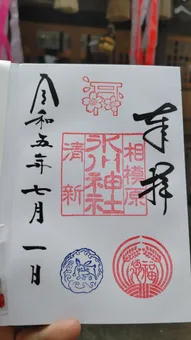 奉拝
相模原
氷川神社
清新
令和五年七月一日